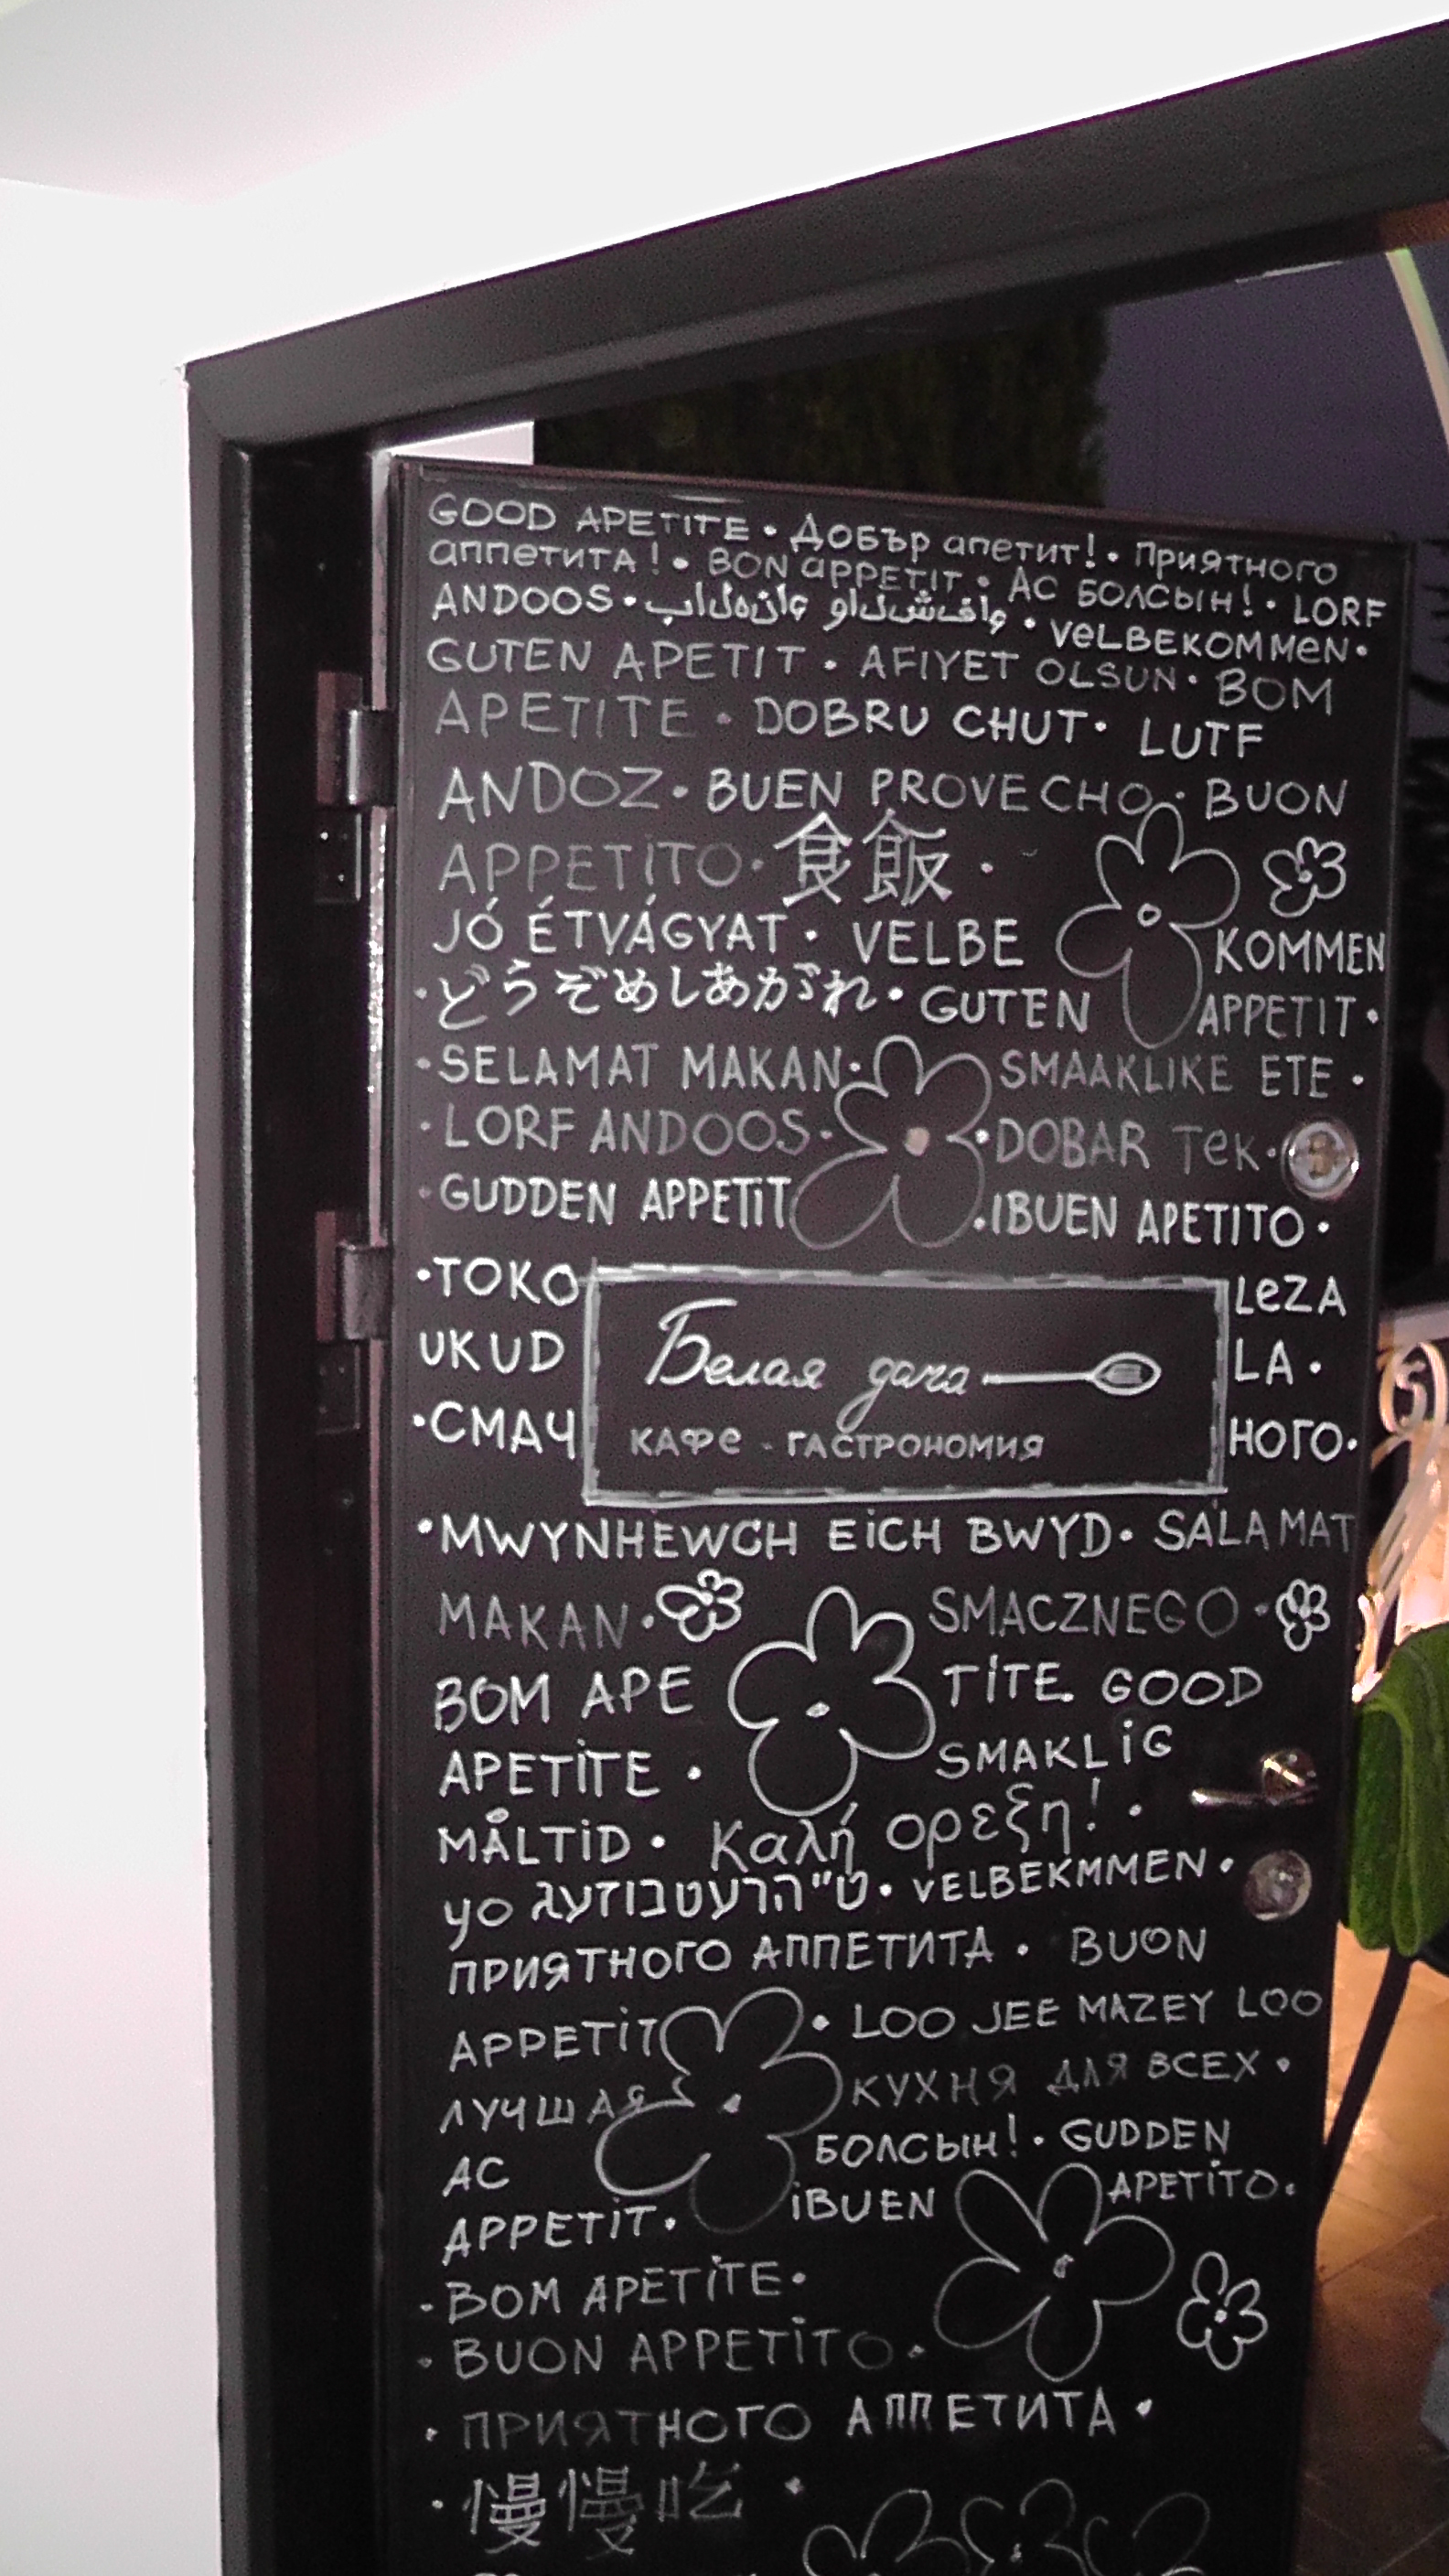 GOOD APETITE • ДОБЪР апетит! • Приятного
аппетита! • BON aPPETIT • АС БОЛСЫН! • LORF
ANDOOS • بالهناء والشفاء • VeLBEKOMMeN •
GUTEN APETIT • AFIYET OLSUN • BOM
APETITE • DOBRU CHUT • LUTF
ANDOZ • BUEN PROVECHO • BUON
APPETITO • 食飯 •
JÓ ÉTVÁGYAT • VELBE KOMMEN
• どうぞめしあがれ • GUTEN APPETIT •
• SELAMAT MAKAN • SMAAKLIKE ETE •
• LORF ANDOOS • • DOBAR Tek •
• GUDDEN APPETIT • IBUEN APETITO •
• TOKO LeZA
UKUD LA •
• СМАЧ НОГО •
Белая дача
КАФе - ГАСТРОНОМИЯ
• MWYNHEWCH EiCH BWYD • SALAMAT
MAKAN • SMACZNEGO •
BOM APE TiTE GOOD
APETiTE • SMAKLiG
MÅLTiD • Καλή ορεξη! •
yo גאעזונטערה"ט • VELBEKMMEN •
ПРИЯТНОГО АППЕТИТА • BUON
APPETiT • LOO JEE MAZEY LOO
ЛУЧШАЯ КУХНЯ ДЛЯ ВСЕХ •
АС БОЛСЫН! • GUDDEN
APPETiT • iBUEN APETiTO •
• BOM APETiTE •
• BUON APPETiTO •
• ПРИЯТНОГО АППЕТИТА •
• 慢慢吃 •